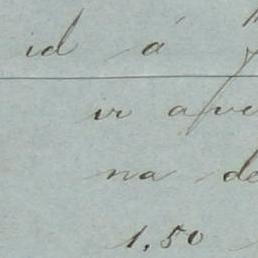 id á
ir ave
na de
1,50